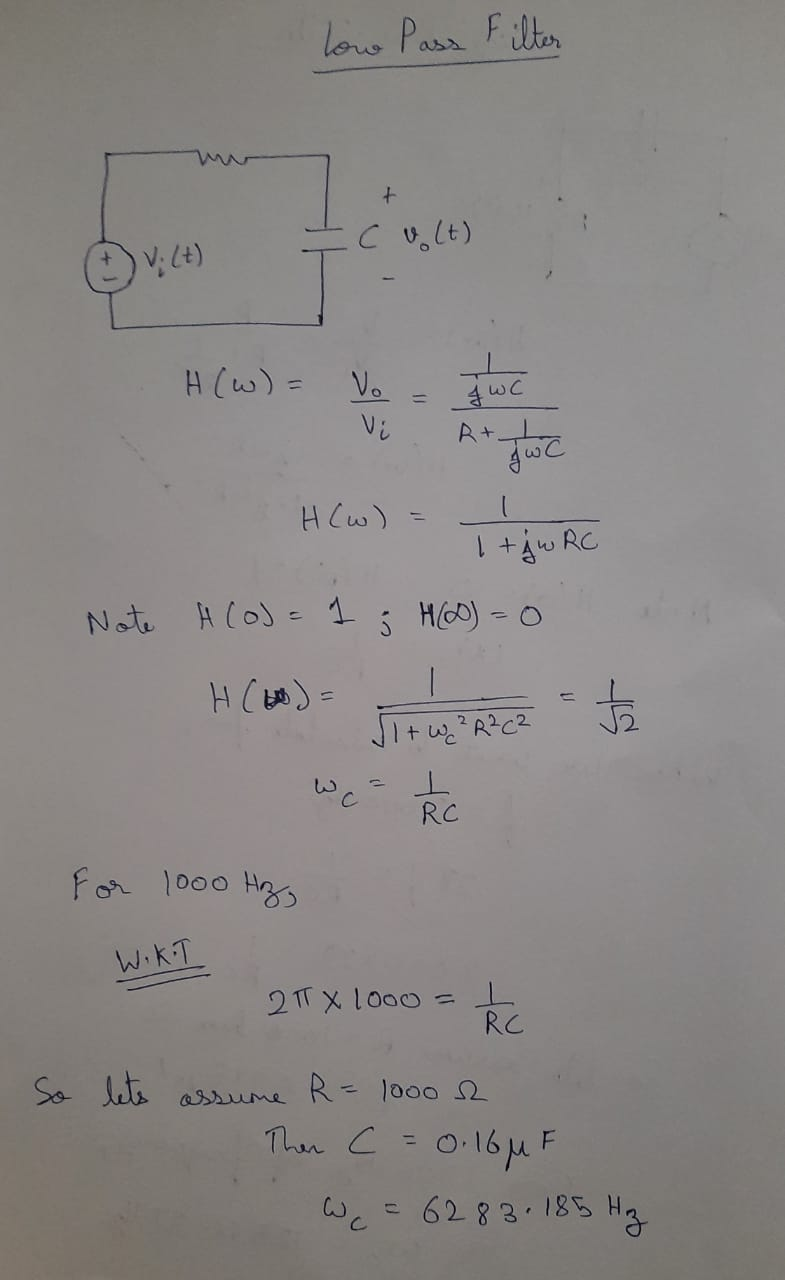 Low Pass Filter
+
+ - Vi(t) C vo(t)
-
H(ω) = Vo/Vi = (1/jωC)/(R + 1/jωC)
H(ω) = 1/(1 + jωRC)
Note H(0) = 1 ; H(∞) = 0
H( ) = 1/√(1 + ωc²R²C²) = 1/√2
ωc = 1/RC
For 1000 Hz,
W.K.T
2π X 1000 = 1/RC
So lets assume R = 1000 Ω
Then C = 0.16 μF
ωc = 6283.185 Hz